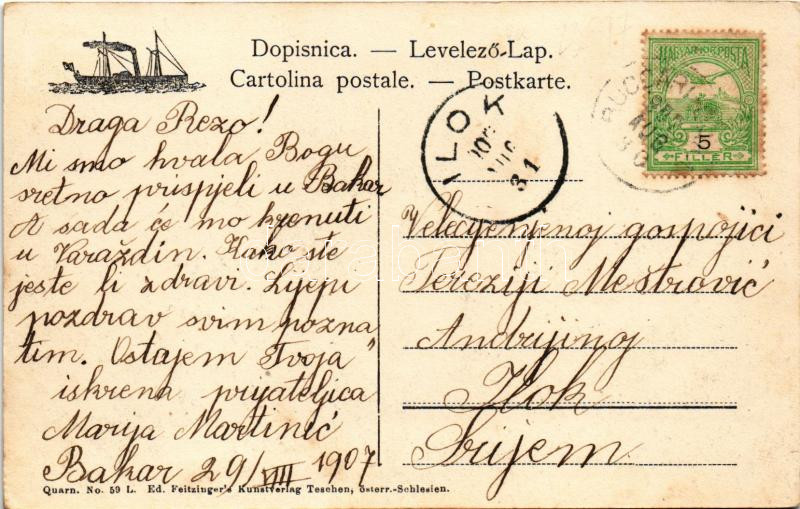 Dopisnica. — Levelező-Lap.
Cartolina postale. — Postkarte.
Draga Rezo!
Mi smo hvala Bogu
sretno prispjeli u Bakar
A sada će mo krenuti
u Varaždin. Kako ste
jeste li zdravi. Lijepi
pozdrav svim pozna
tim. Ostajem Tvoja
iskrena prijateljica
Marija Martinić
Bakar 29/VIII 1907
ILOK
31
MAGYAR KIR. POSTA
5
FILLÉR
Velecijenjenoj gospojici
Tereziji Meštrović
Andrijinoj
Ilok
Srijem
Quarn. No. 59 L. Ed. Feitzinger's Kunstverlag Teschen, österr.-Schlesien.